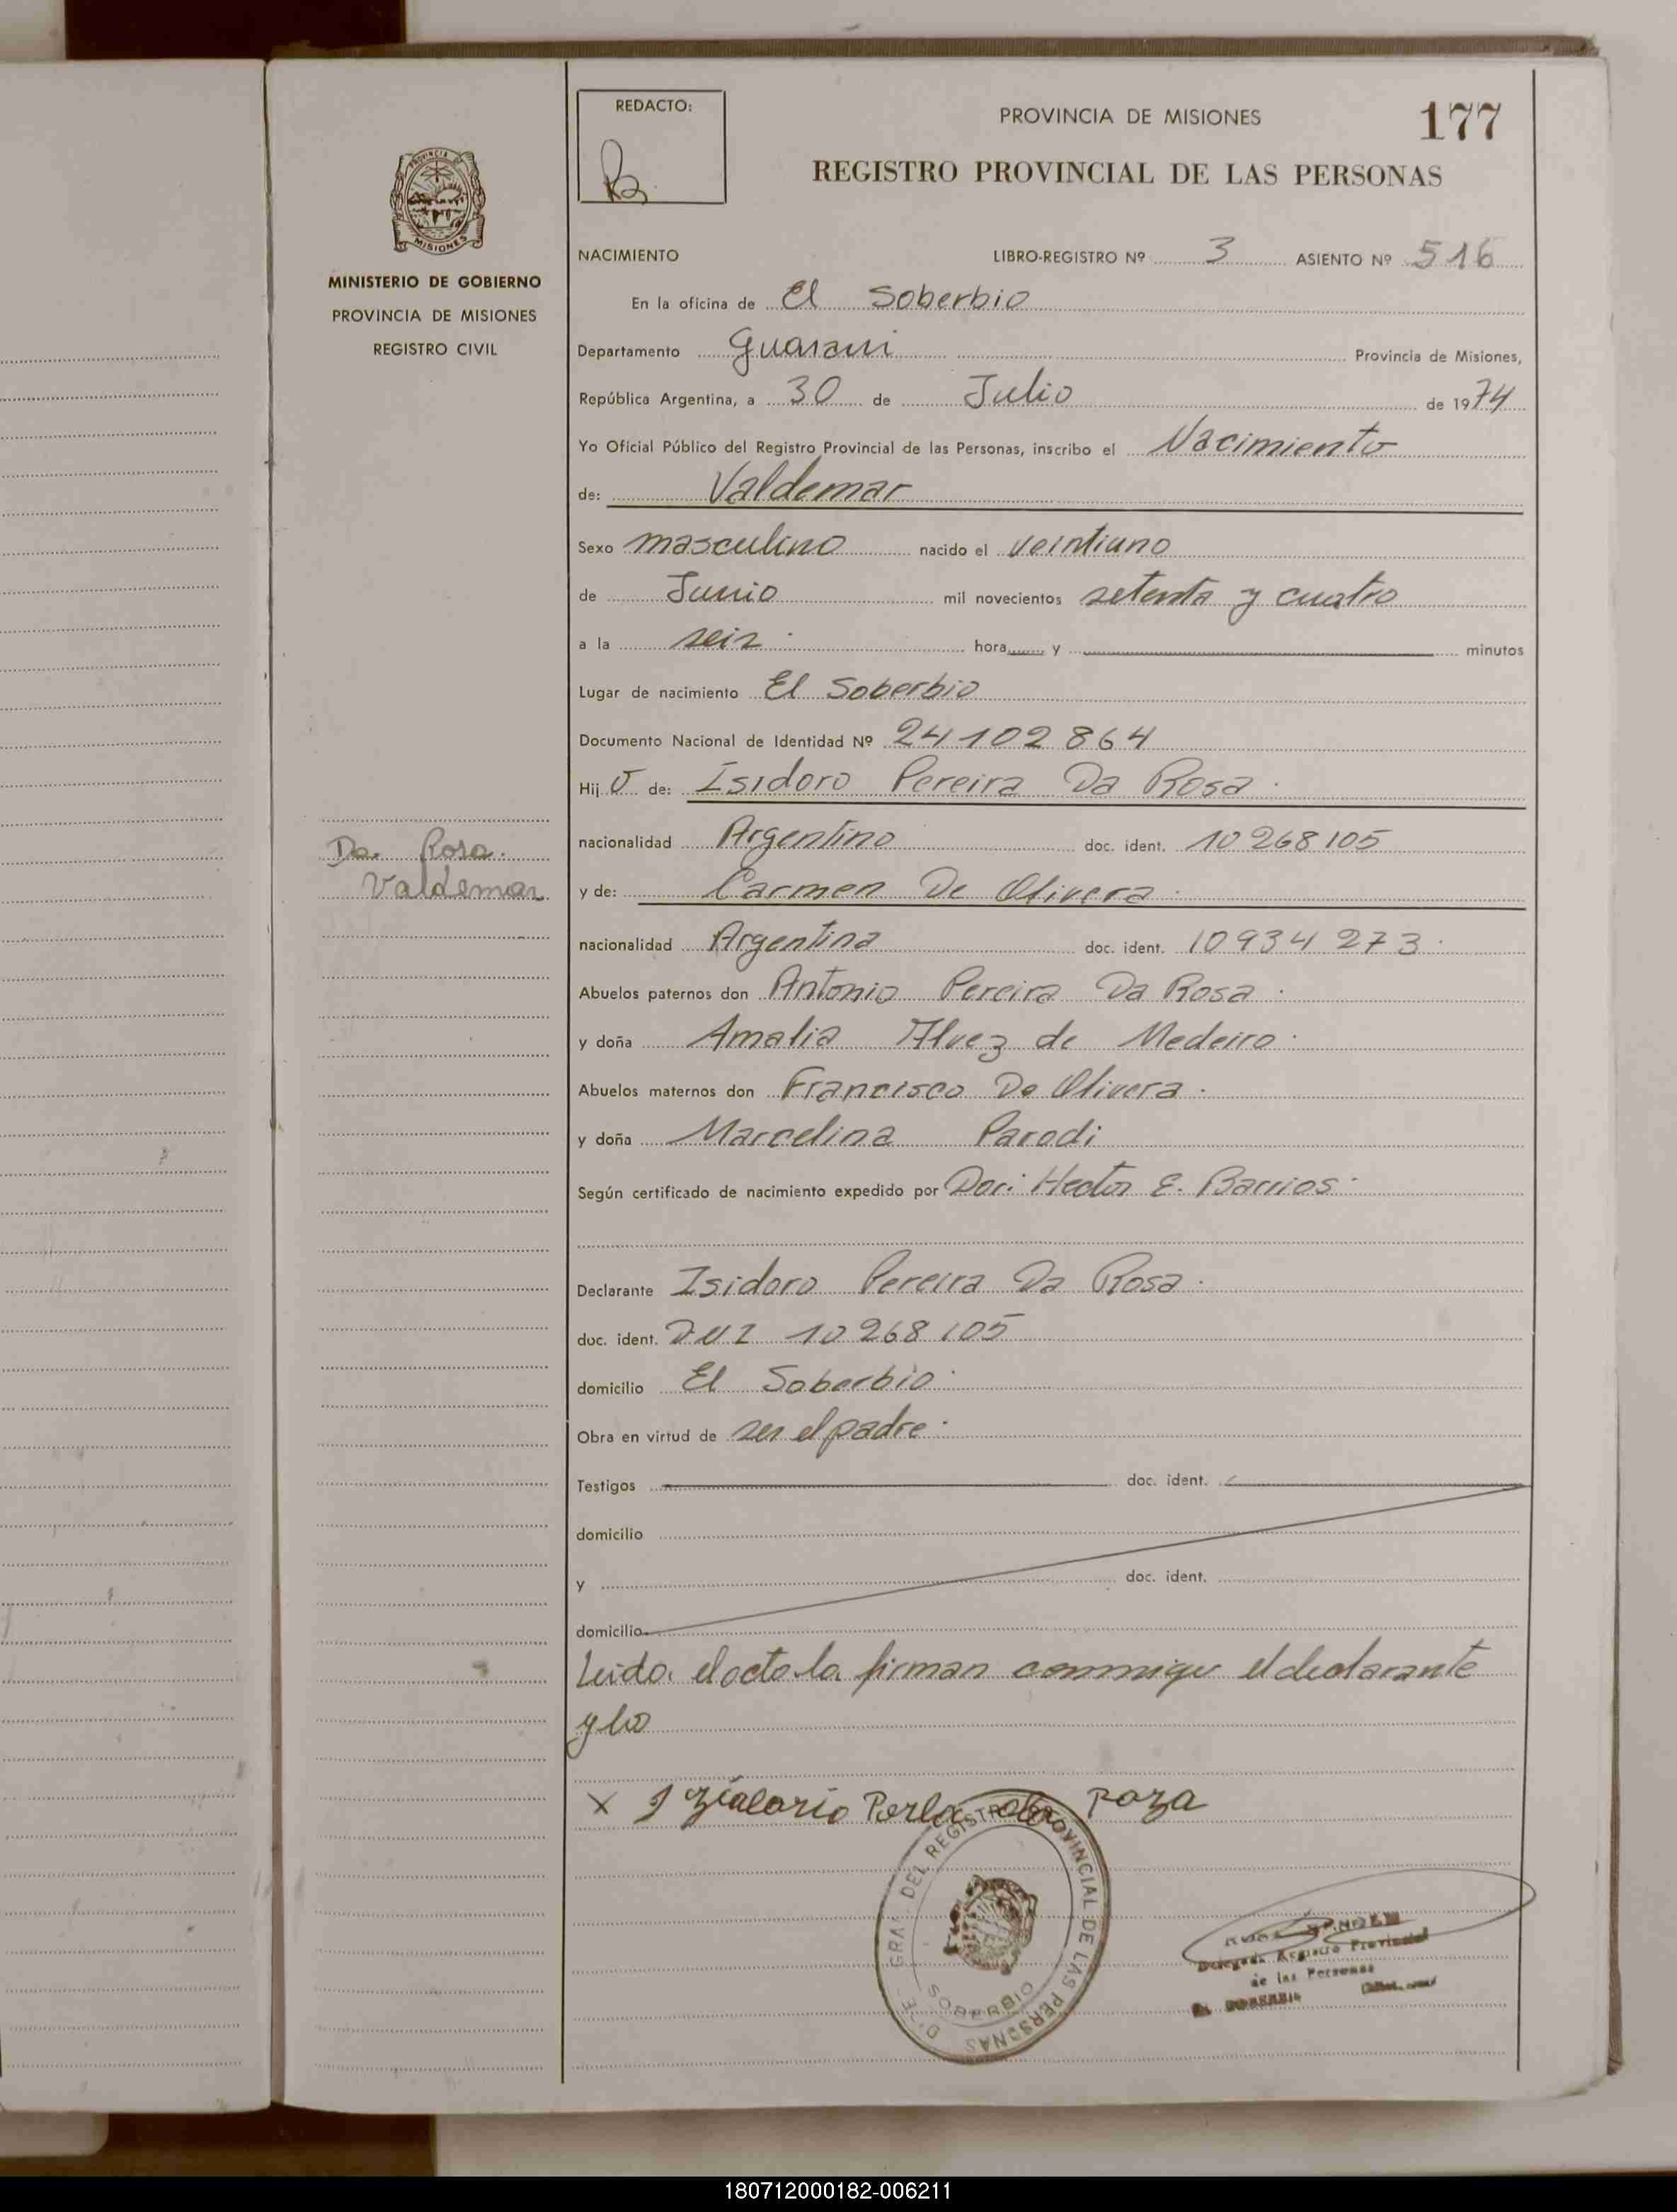 REDACTO:
PROVINCIA DE MISIONES
177
REGISTRO PROVINCIAL DE LAS PERSONAS
PROVINCIA DE
MISIONES
MINISTERIO DE GOBIERNO
PROVINCIA DE MISIONES
REGISTRO CIVIL
NACIMIENTO LIBRO-REGISTRO Nº 3 ASIENTO Nº 516
En la oficina de El Soberbio
Departamento Guarani Provincia de Misiones,
República Argentina, a 30 de Julio de 1974
Yo Oficial Público del Registro Provincial de las Personas, inscribo el Nacimiento
de: Valdemar
Sexo masculino nacido el veintiuno
de Junio mil novecientos setenta y cuatro
a la seis hora y minutos
Lugar de nacimiento El Soberbio
Documento Nacional de Identidad Nº 24102864
Hij o de: Isidoro Pereira Da Rosa
nacionalidad Argentino doc. ident. 10268105
Da Rosa
Valdemar
y de: Carmen De Olivera
nacionalidad Argentina doc. ident. 10934273
Abuelos paternos don Antonio Pereira Da Rosa
y doña Amalia Alvez de Medeiro
Abuelos maternos don Francisco De Olivera
y doña Marcelina Parodi
Según certificado de nacimiento expedido por Hector E. Barrios
Declarante Isidoro Pereira Da Rosa
doc. ident. DNI 10268105
domicilio El Soberbio
Obra en virtud de ser el padre
Testigos doc. ident.
domicilio
y doc. ident.
domicilio
Leido el acta la firman conmigo el declarante
y lo
DEL REGISTRO PROVINCIAL DE LAS PERSONAS
SOBERBIO
Registro Provincial
de las Personas
180712000182-006211